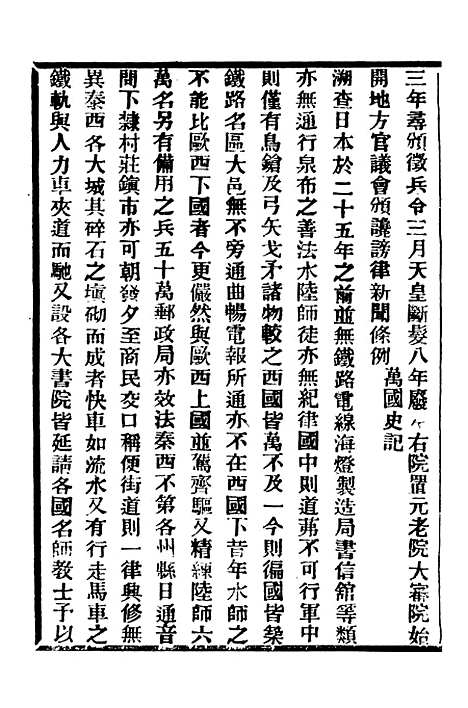 三年尋頒徵兵令三月天皇斷髮八年廢左右院置元老院大審院始
開地方官議會頒讒謗律新聞條例
萬國史記
溯查日本於二十五年之前並無鐵路電線海燈製造局書信館等類
亦無通行泉布之善法水陸師徒亦無紀律國中則道茀不可行軍中
則僅有鳥鎗及弓矢戈矛諸物較之西國皆萬不及一今則徧國皆築
鐵路名區大邑無不旁通曲暢電報所通亦不在西國下昔年水師之
不能比歐西下國者今更儼然與歐西上國並駕齊驅又精練陸師六
萬名另有備用之兵五十萬郵政局亦效法泰西不第各州縣日通音
問下隸村莊鎮市亦可朝發夕至商民交口稱便街道則一律興修無
異泰西各大城其碎石之塡砌而成者快車如流水又有行走馬車之
鐵軌與人力車夾道而馳又設各大書院皆延請各國名師教士予以